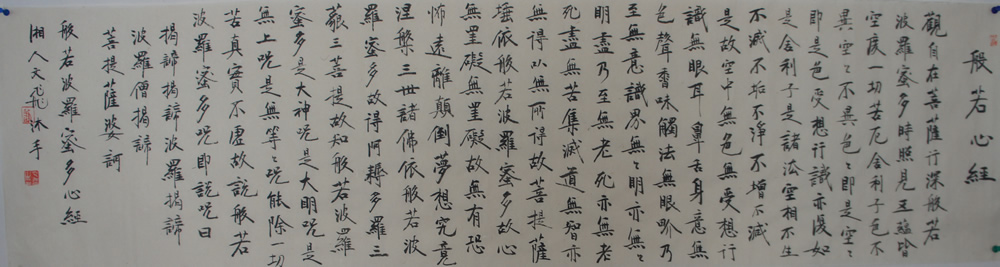 般若心經
觀自在菩薩行深般若
波羅蜜多時照見五蘊皆
空度一切苦厄舍利子色不
異空〻不異色〻即是空〻
即是色受想行識亦復如
是舍利子是諸法空相不生
不滅不垢不淨不增不減
是故空中無色無受想行
識無眼耳鼻舌身意無
色聲香味觸法無眼界乃
至無意識界無〻明亦無〻
明盡乃至無老死亦無老
死盡無苦集滅道無智亦
無得以無所得故菩提薩
埵依般若波羅蜜多故心
無罣礙無罣礙故無有恐
怖遠離顛倒夢想究竟
涅槃三世諸佛依般若波
羅蜜多故得阿耨多羅三
藐三菩提故知般若波羅
蜜多是大神咒是大明咒是
無上咒是無等〻咒能除一切
苦真實不虛故說般若
波羅蜜多咒即說咒曰
揭諦揭諦波羅揭諦
波羅僧揭諦
菩提薩婆訶
般若波羅蜜多心經
湘人天飛沐手